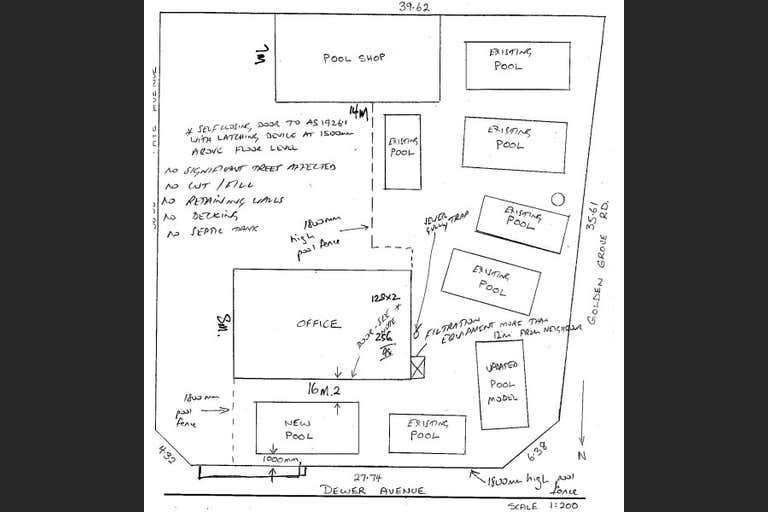 39.62
7M
POOL SHOP
EXISTING
POOL
14M
* SELF CLOSING, DOOR TO AS 1926.1
WITH LATCHING, DEVICE AT 1500mm
ABOVE FLOOR LEVEL
EXISTING
POOL
EXISTING
POOL
NO SIGNIFICANT TREES AFFECTED
NO CUT / FILL
NO RETAINING WALLS
NO DECKING
NO SEPTIC TANK
1800mm
high
pool fence
SEWER
GULLY TRAP
EXISTING
POOL
35.61
GOLDEN GROVE RD.
EXISTING
POOL
8m.
OFFICE
128x2
DOOR - SEE *
NOTE
256
FILTRATION
EQUIPMENT MORE THAN
12m FROM NEIGHBOUR
UPDATED
POOL
MODEL
16M.2
1800mm
pool
fence
NEW
POOL
EXISTING
POOL
4.32
1000mm
6.38
N
27.74
1800mm high pool
fence
DEWER AVENUE
SCALE 1:200